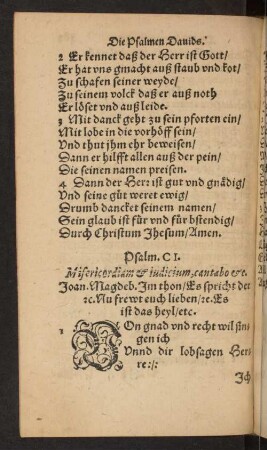 Die Psalmen Dauids.
2 Er kennet daß der Herr ist Gott/
Er hat vns gmacht auß staub vnd kot/
Zu schafen seiner weyde/
Zu seinem volck daß er auß noth
Er löset vnd auß leide.
3 Mit danck geht zu sein pforten ein/
Mit lobe in die vorhöff sein/
Vnd thut jhm ehr beweisen/
Dann er hilfft allen auß der pein/
Die seinen namen preisen.
4 Dann der Herr ist gut vnd gnädig/
Vnd seine güt weret ewig/
Drumb dancket seinem namen/
Sein glaub ist für vnd für bstendig/
Durch Christum Jhesum/Amen.
Psalm. CI.
Misericordiam & iudicium, cantabo &c.
Joan. Magdeb. Im thon/Es spricht der
ꝛc. Nu frewt euch lieben/ꝛc. Es
ist das heyl/etc.
1 Von gnad vnd recht wil sin-
gen ich
Vnnd dir lobsagen Her-
re:/:
Ich